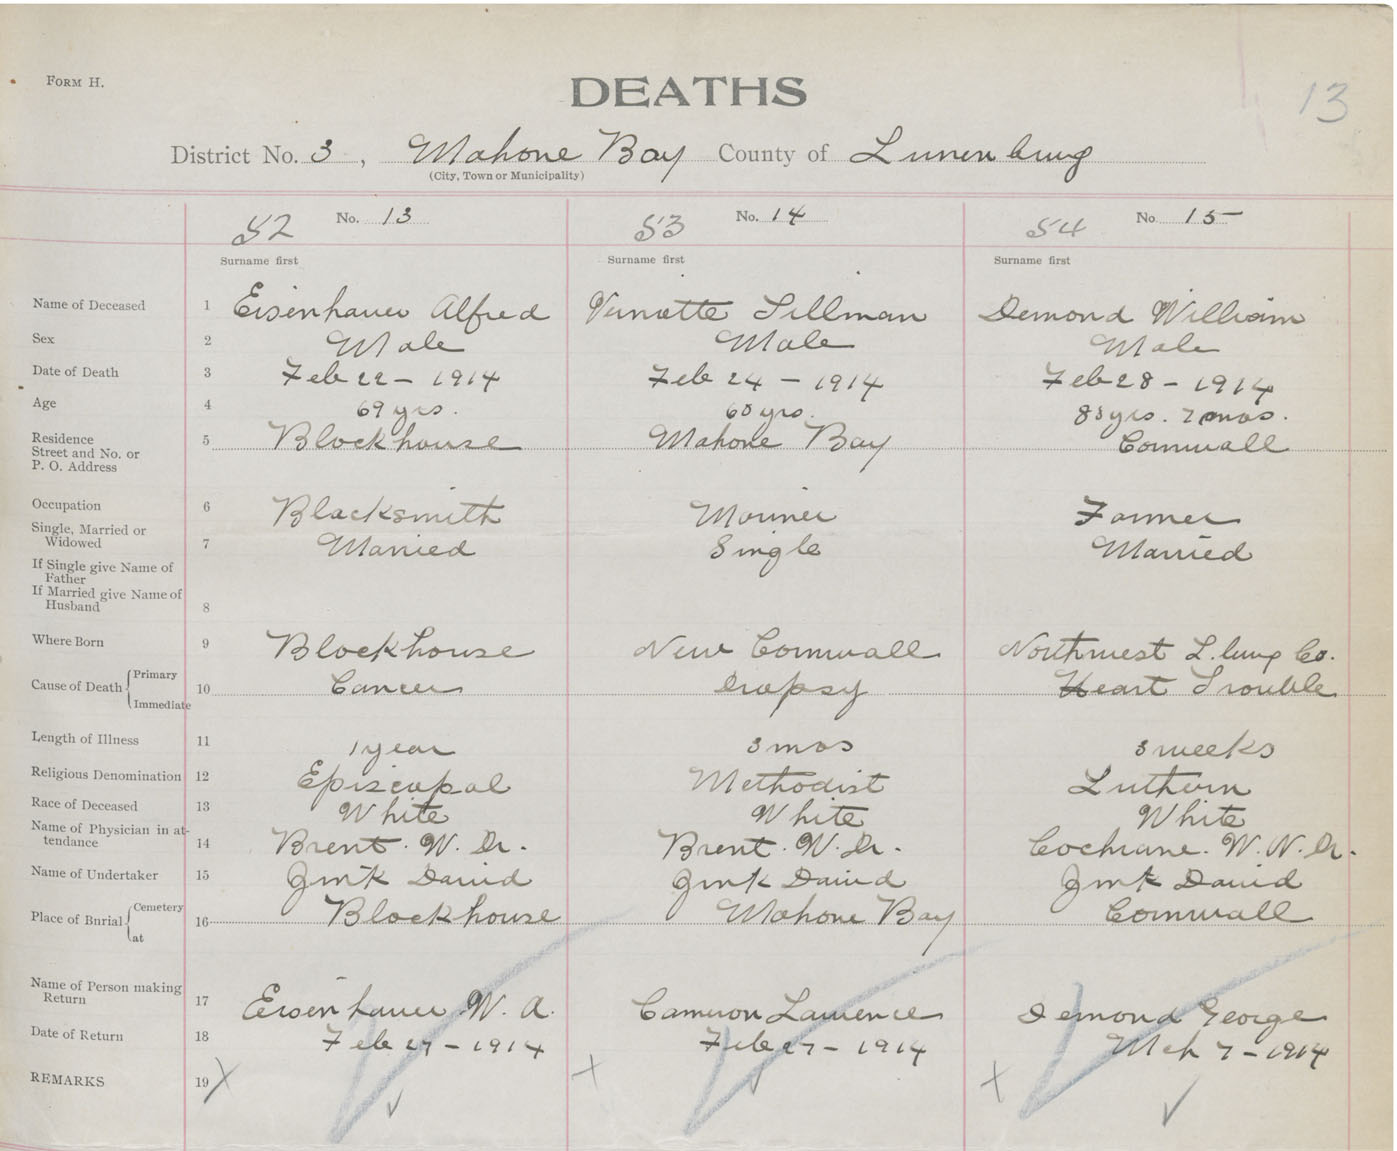 FORM H.
DEATHS
13
District No. 3, Mahone Bay County of Lunenburg
(City, Town or Municipality)
52 No. 13 53 No. 14 54 No. 15
Surname first Surname first Surname first
Name of Deceased 1 Eisenhauer Alfred Tillman Demond William
Sex 2 Male Male Male
Date of Death 3 Feb 22 - 1914 Feb 24 - 1914 Feb 28 - 1914
Age 4 69 yrs. yrs. yrs. 7 mos.
Residence
Street and No. or
P. O. Address 5 Blockhouse Mahone Bay Cornwall
Occupation 6 Blacksmith Mariner Farmer
Single, Married or
Widowed 7 Married Single Married
If Single give Name of
Father
If Married give Name of
Husband 8
Where Born 9 Blockhouse New Cornwall Northwest L.burg Co.
Cause of Death { Primary Immediate 10 Cancer Dropsy Heart Trouble
Length of Illness 11 1 year 3 mos 3 weeks
Religious Denomination 12 Episcopal Methodist Luthern
Race of Deceased 13 White White White
Name of Physician in at-
tendance 14 Brent. W. Dr. Brent. W. Dr. Cochrane. W. N. Dr.
Name of Undertaker 15 Zink David Zink David Zink David
Place of Burial { Cemetery at 16 Blockhouse Mahone Bay Cornwall
Name of Person making
Return 17 Eisenhauer W. A. Cameron Lawrence Demond George
Date of Return 18 Feb 27 - 1914 Feb 27 - 1914 Mch 7 - 1914
REMARKS 19